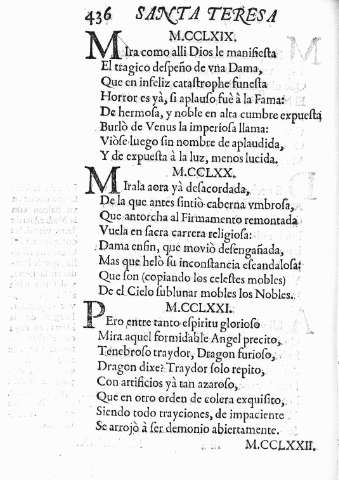 436 SANTA TERESA
M.CCLXIX.
Mira como alli Dios le manifiesta
El tragico despeño de vna Dama,
Que en infeliz catastrophe funesta
Horror es yà, si aplauso fuè à la Fama:
De hermosa, y noble en alta cumbre expuesta
Burlò de Venus la imperiosa llama:
Viòse luego sin nombre de aplaudida,
Y de expuesta à la luz, menos lucida.
M.CCLXX.
Mirala aora yà desacordada,
De la que antes sintiò caberna vmbrosa,
Que antorcha al Firmamento remontada
Vuela en sacra carrera religiosa:
Dama enfin, que moviò desengañada,
Mas que helò su inconstancia escandalosa:
Que son (copiando los celestes mobles)
De el Cielo sublunar mobles los Nobles.
M.CCLXXI.
Pero entre tanto espiritu glorioso
Mira aquel formidable Angel precito,
Tenebroso traydor, Dragon furioso,
Dragon dixe? Traydor solo repito,
Con artificios yà tan azaroso,
Que en otro orden de colera exquisito,
Siendo todo trayciones, de impaciente
Se arrojò à ser demonio abiertamente.
M.CCLXXII.